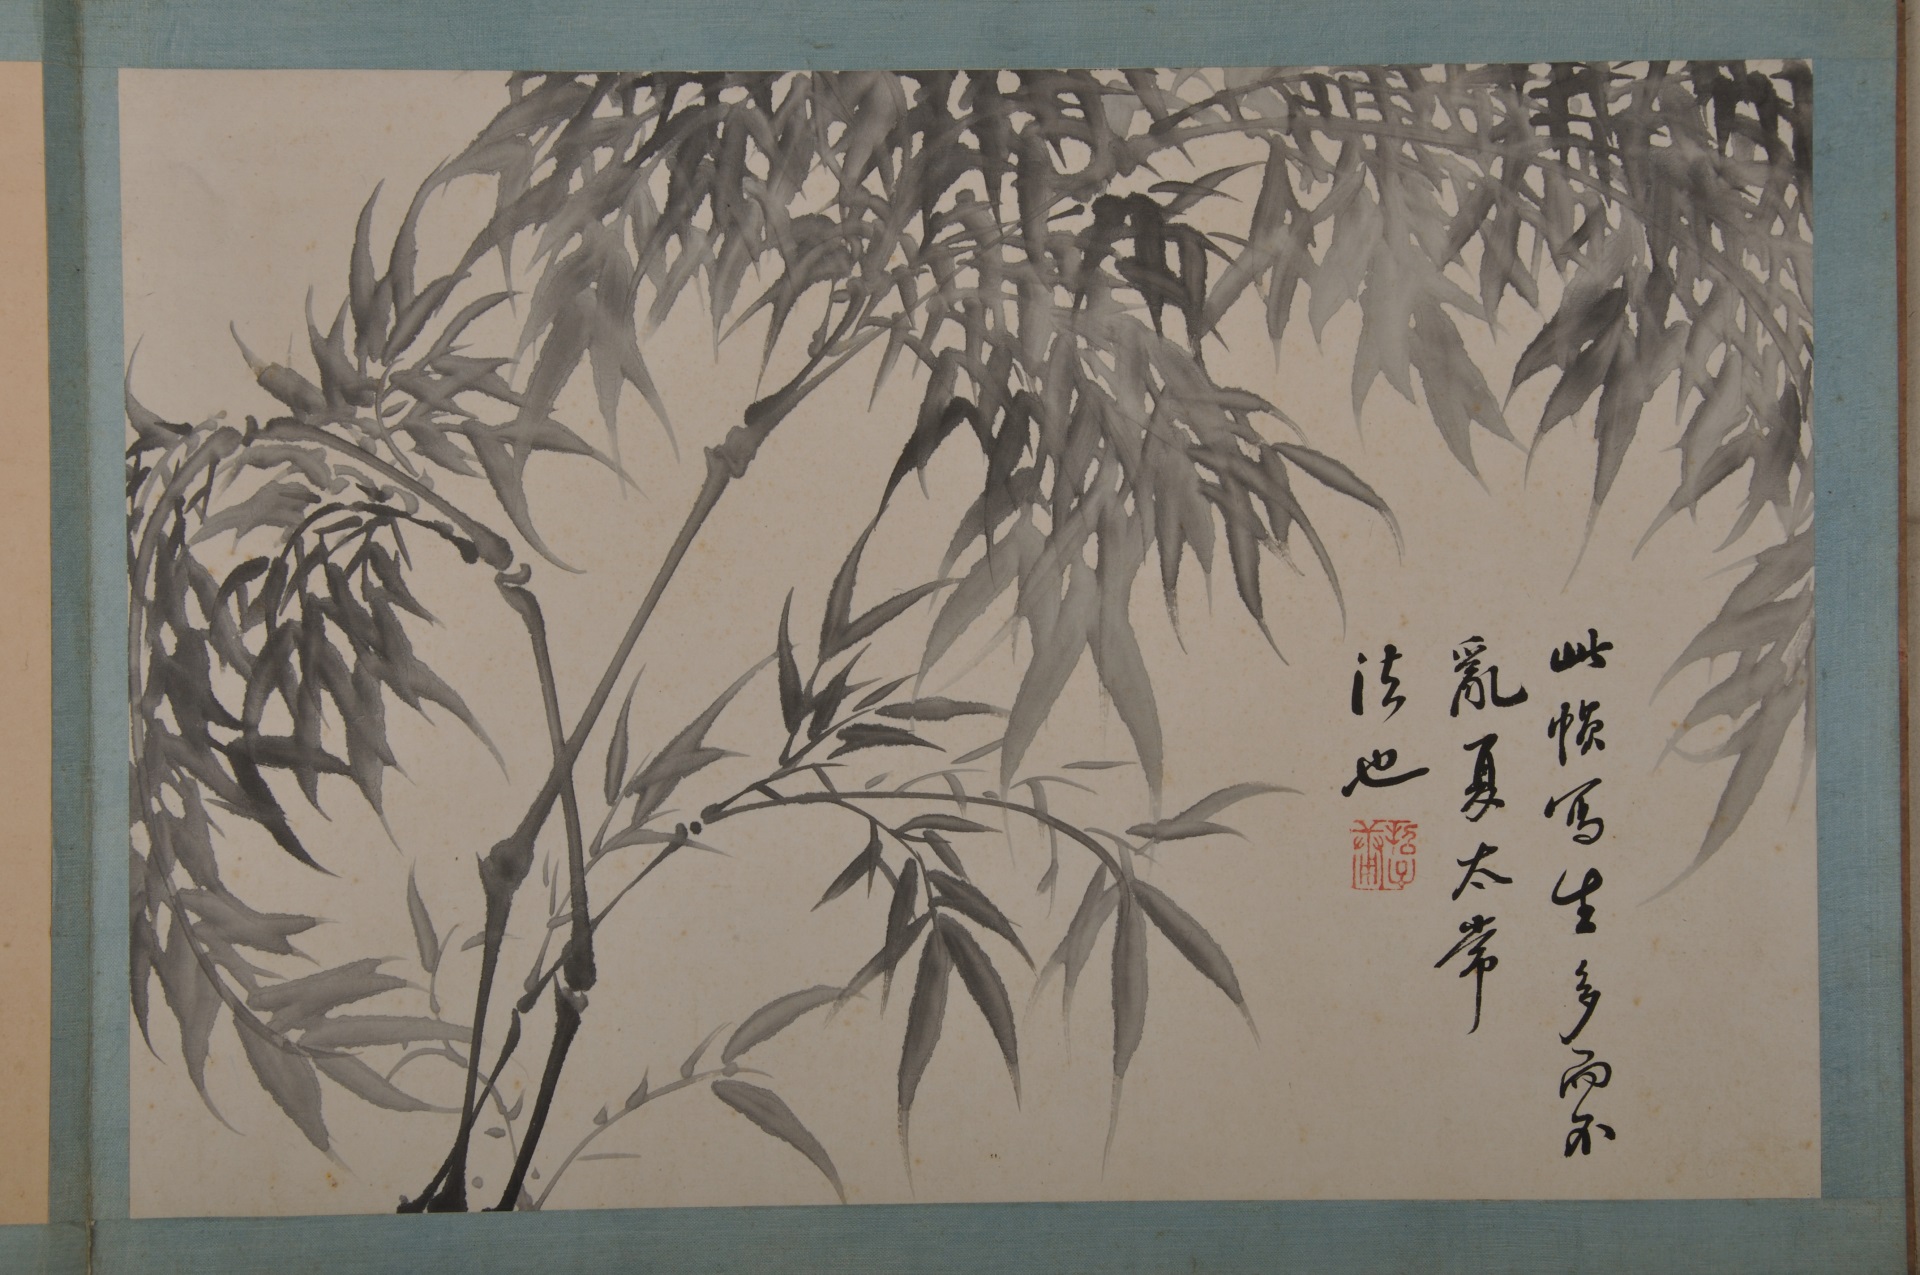 此幀寫生多而不
亂夏太常
法也